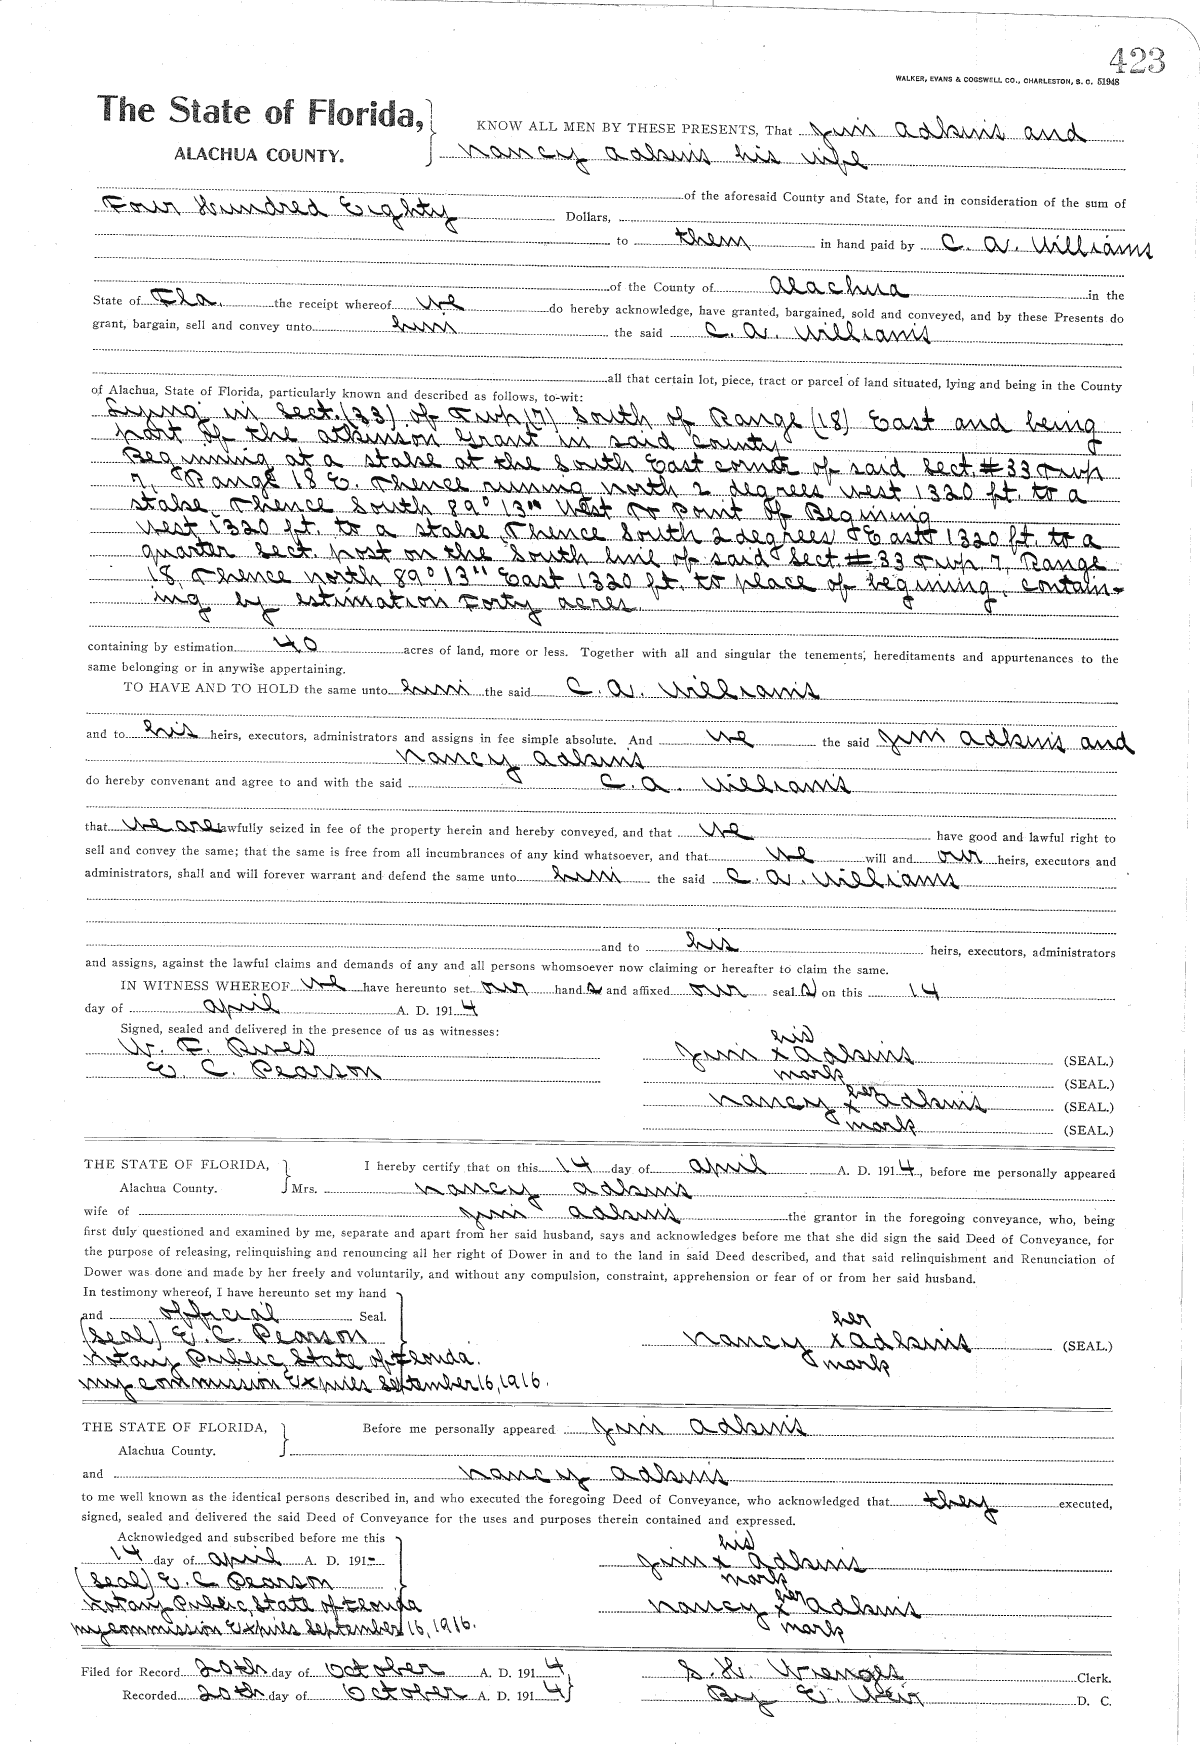 423
WALKER, EVANS & COGSWELL CO., CHARLESTON, S. C. 51948
The State of Florida,
ALACHUA COUNTY.
KNOW ALL MEN BY THESE PRESENTS, That Jim Adkins and
Nancy Adkins his wife
of the aforesaid County and State, for and in consideration of the sum of
Four Hundred Eighty Dollars,
to them in hand paid by C. A. Williams
of the County of Alachua in the
State of Fla. the receipt whereof we do hereby acknowledge, have granted, bargained, sold and conveyed, and by these Presents do
grant, bargain, sell and convey unto him the said C. A. Williams
all that certain lot, piece, tract or parcel of land situated, lying and being in the County
of Alachua, State of Florida, particularly known and described as follows, to-wit:
Lying in Sect. (33) of Twp. (7) South of Range (18) East and being
part of the Atkinson Grant in said County
Beginning at a stake at the South East corner of said Sect. #33 Twp
7, Range 18 E. Thence running north 2 degrees west 1320 ft. to a
stake, Thence South 89° 13" West to Point of Begining
West 1320 ft. to a stake, Thence South 2 degrees East 1320 ft. to a
quarter Sect. post on the South line of said Sect #33 Twp 7, Range
18, Thence north 89° 13" East 1320 ft. to place of begining, contain-
ing by estimation Forty acres.
containing by estimation 40 acres of land, more or less. Together with all and singular the tenements, hereditaments and appurtenances to the
same belonging or in anywise appertaining.
TO HAVE AND TO HOLD the same unto him the said C. A. Williams
and to his heirs, executors, administrators and assigns in fee simple absolute. And we the said Jim Adkins and
Nancy Adkins
do hereby convenant and agree to and with the said C. A. Williams
that we are lawfully seized in fee of the property herein and hereby conveyed, and that we have good and lawful right to
sell and convey the same; that the same is free from all incumbrances of any kind whatsoever, and that we will and our heirs, executors and
administrators, shall and will forever warrant and defend the same unto him the said C. A. Williams
and to his heirs, executors, administrators
and assigns, against the lawful claims and demands of any and all persons whomsoever now claiming or hereafter to claim the same.
IN WITNESS WHEREOF we have hereunto set our hands and affixed our seals on this 14
day of April A. D. 1914
Signed, sealed and delivered in the presence of us as witnesses:
W. F.
E. C. Pearson
his
Jim x Adkins (SEAL.)
mark (SEAL.)
Nancy her x Adkins (SEAL.)
mark (SEAL.)
THE STATE OF FLORIDA,
Alachua County.
I hereby certify that on this 14 day of April A. D. 1914, before me personally appeared
Mrs. Nancy Adkins
wife of Jim Adkins the grantor in the foregoing conveyance, who, being
first duly questioned and examined by me, separate and apart from her said husband, says and acknowledges before me that she did sign the said Deed of Conveyance, for
the purpose of releasing, relinquishing and renouncing all her right of Dower in and to the land in said Deed described, and that said relinquishment and Renunciation of
Dower was done and made by her freely and voluntarily, and without any compulsion, constraint, apprehension or fear of or from her said husband.
In testimony whereof, I have hereunto set my hand
and official Seal.
(Seal) E. C. Pearson
Notary Public, State of Florida.
My commission Expires September 16, 1916.
her
Nancy x Adkins (SEAL.)
mark
THE STATE OF FLORIDA,
Alachua County.
Before me personally appeared Jim Adkins
and Nancy Adkins
to me well known as the identical persons described in, and who executed the foregoing Deed of Conveyance, who acknowledged that they executed,
signed, sealed and delivered the said Deed of Conveyance for the uses and purposes therein contained and expressed.
Acknowledged and subscribed before me this
14 day of April A. D. 191-
(Seal) E. C Pearson
Notary Public, State of Florida
My commission Expires September 16, 1916.
his
Jim x Adkins
mark
Nancy her x Adkins
mark
Filed for Record 20th day of October A. D. 1914
Recorded 20th day of October A. D. 1914
S. H. Wienges Clerk.
By E. Weir D. C.